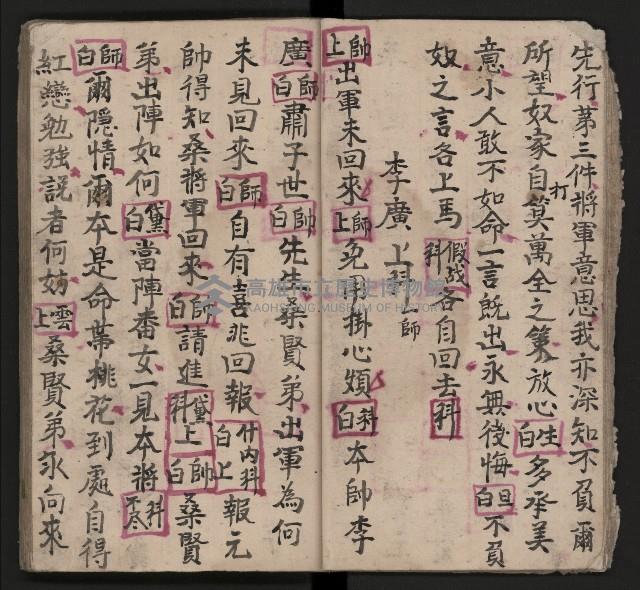 先行第三件將軍意思我亦深知不負爾
所望奴家自打算萬全之策放心生白多承美
意小人敢不如命一言既出永無後悔旦白不負
奴之言各上馬假戏科各自回去科
李廣上科上師
帥上出軍未回來師上免馬掛心頭科白本帥李
廣師白肅子世帥白先生桑賢弟出軍為何
未見回來師白自有喜非回報什内科白上報元
帥得知桑將軍回來師白請進黛科上帥白桑賢
弟出陣如何黛白當陣番女一見本將科不忍
師白爾隱情爾本是命帶桃花到處自得
紅戀勉強説者何妨雲上桑賢弟永向來
高雄市立歷史博物館
KAOHSIUNG MUSEUM OF HISTORY